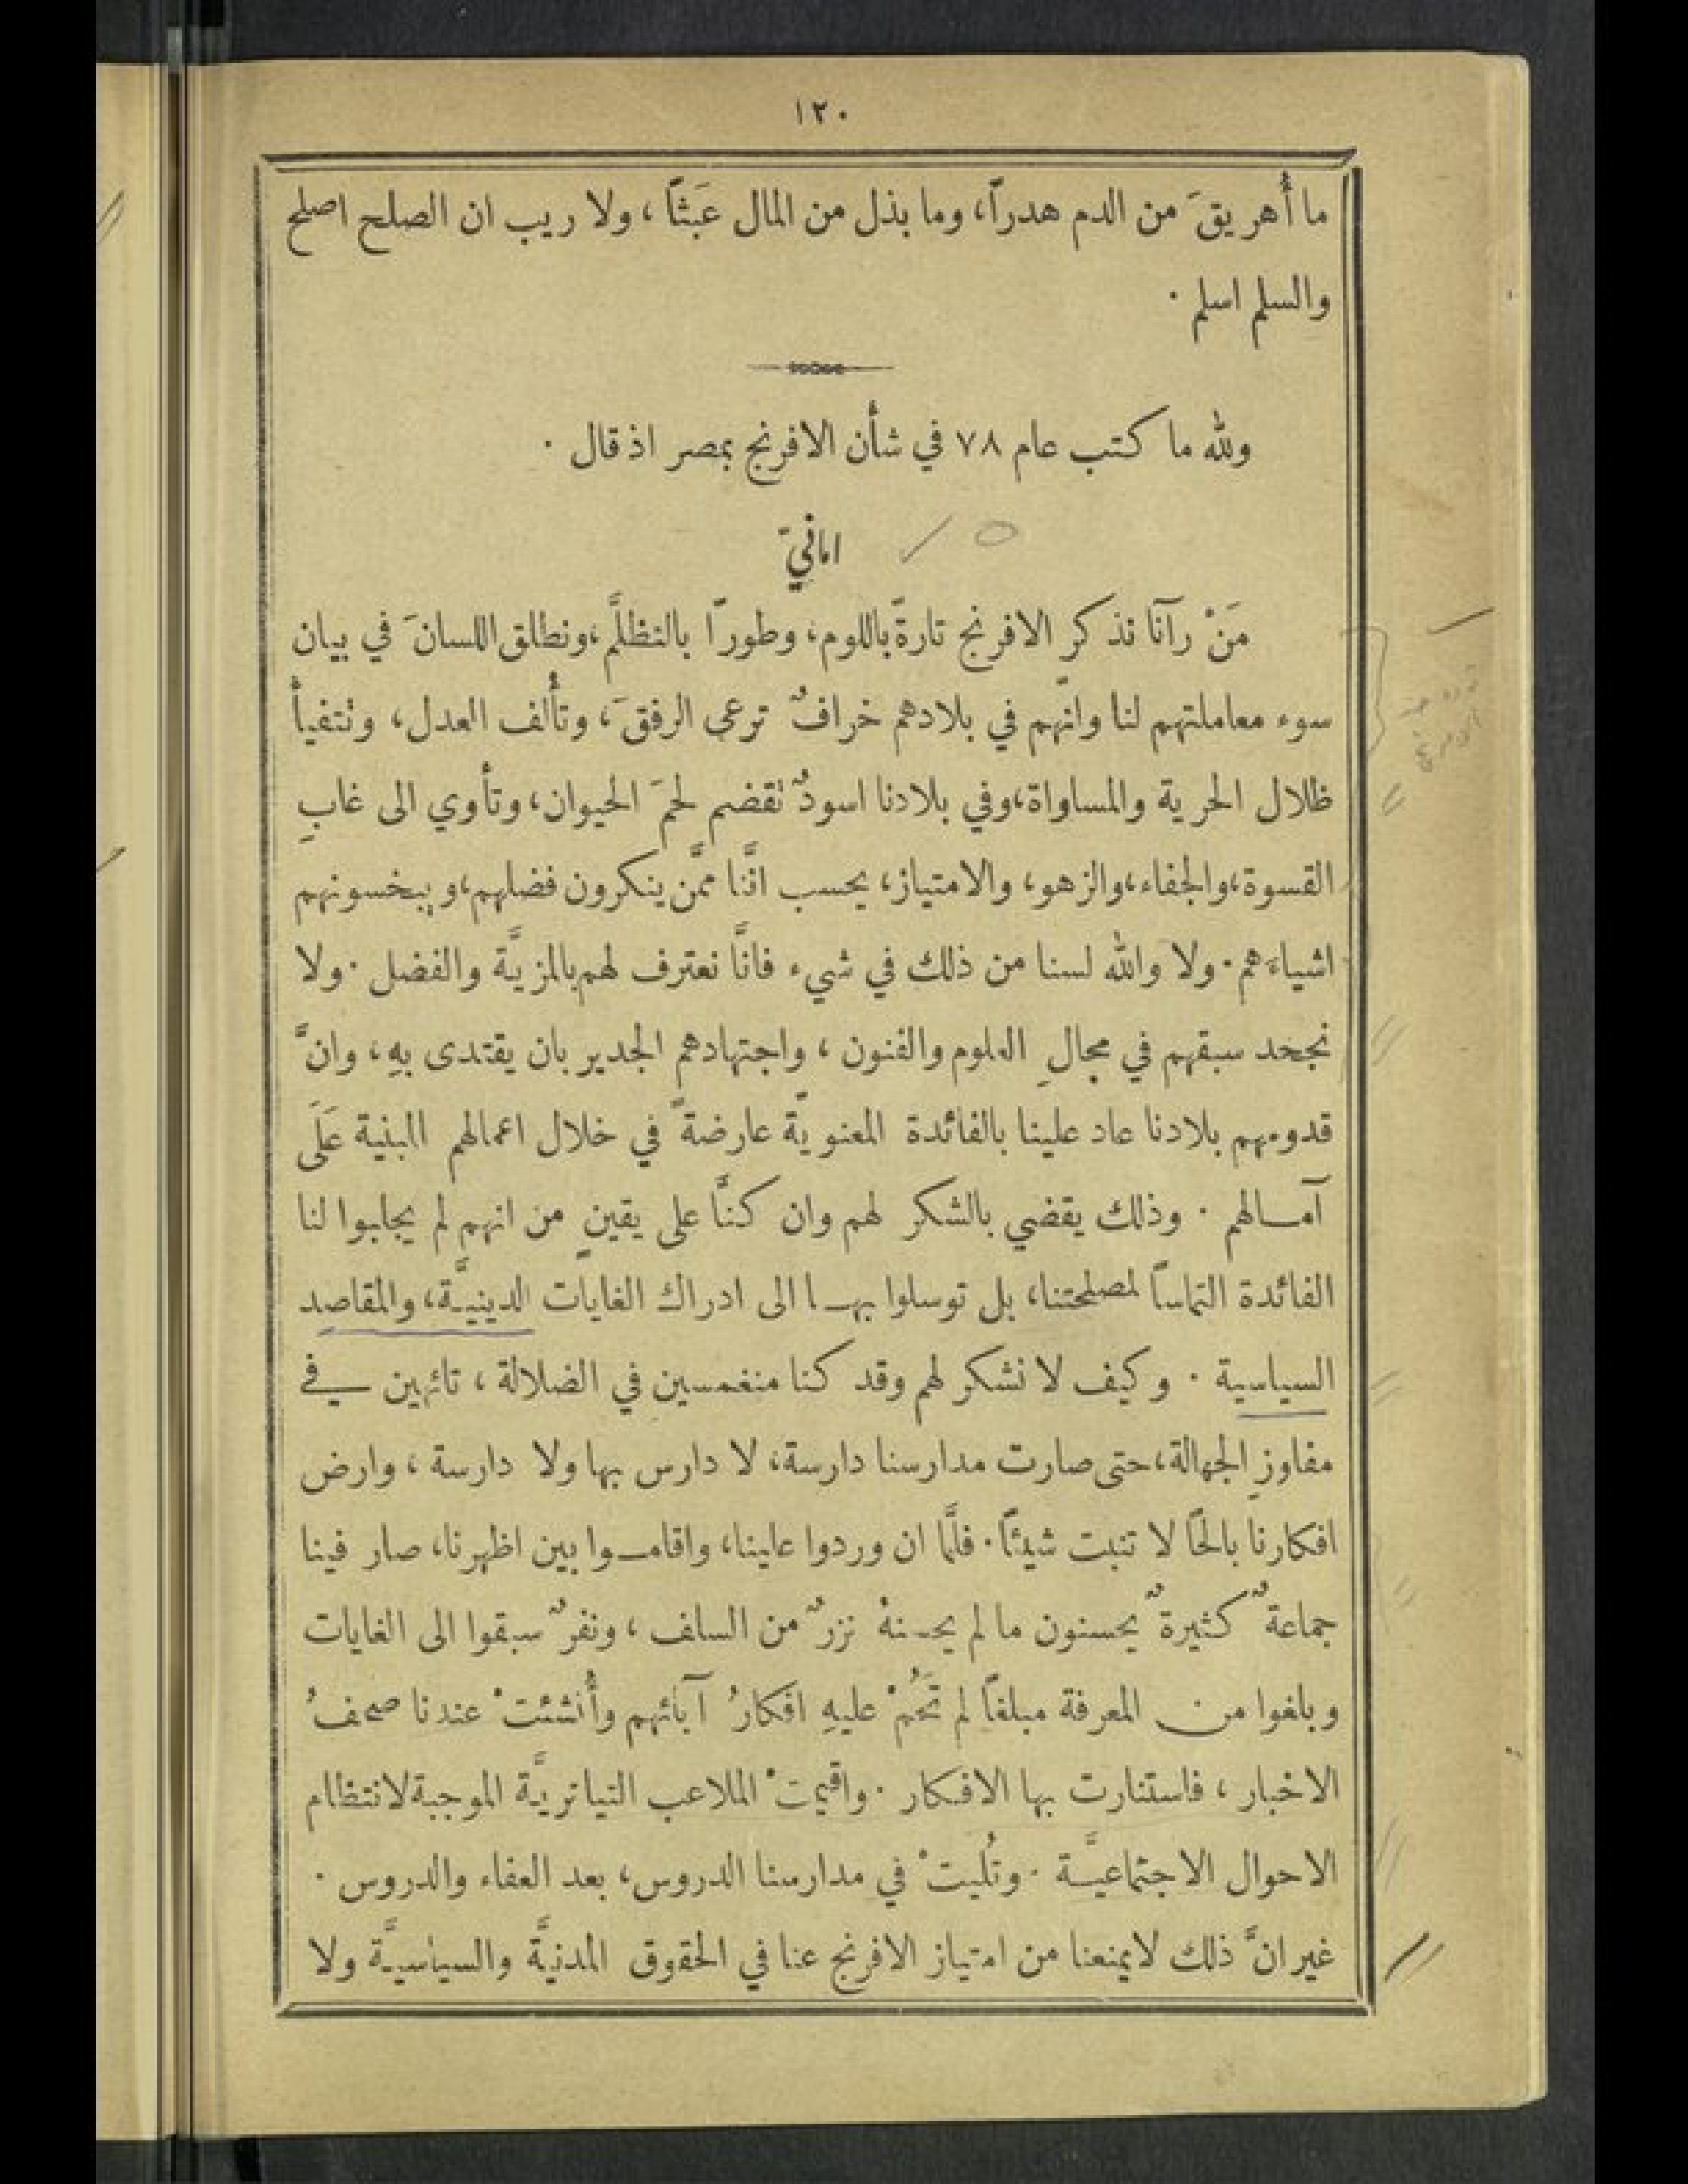 ١٢٠
ما أُهريقَ من الدم هدراً، وما بذل من المال عَبَثاً، ولا ريب ان الصلح اصلح
والسلم اسلم ·
ولله ما كتب عام ٧٨ في شأن الافرنج بمصر اذ قال ·
امانيّ
مَنْ رآنا نذكر الافرنج تارةً باللوم، وطوراً بالتظلَّم، ونطلق اللسانَ في بيان
سوء معاملتهم لنا وانّهم في بلادهم خرافٌ ترعى الرفقَ، وتألف العدل، وتتفيأُ
ظلال الحرية والمساواة، وفي بلادنا اسودٌ تقضم لحمَ الحيوان، وتأوي الى غابِ
القسوة، والجفاء، والزهو، والامتياز، يحسب انَّنا ممَّن ينكرون فضلهم، ويبخسونهم
اشياءَهم · ولا والله لسنا من ذلك في شيء فانَّا نعترف لهم بالمزيَّة والفضل · ولا
نجحد سبقهم في مجالِ العلوم والفنون، واجتهادهم الجدير بان يقتدى بهِ، وانَّ
قدومهم بلادنا عاد علينا بالفائدة المعنويَّة عارضةً في خلال اعمالهم المبنية عَلَى
آمالهم · وذلك يقضي بالشكر لهم وان كنَّا على يقينٍ من انهم لم يجلبوا لنا
الفائدة التماساً لمصلحتنا، بل توسلوا بها الى ادراك الغايات الدينيَّة، والمقاصد
السياسية · وكيف لا نشكر لهم وقد كنا منغمسين في الضلالة، تائهين في
مفاوزِ الجهالة، حتى صارت مدارسنا دارسة، لا دارس بها ولا دارسة، وارض
افكارنا بالحًا لا تنبت شيئاً · فلَّما ان وردوا علينا، واقاموا بين اظهرنا، صار فينا
جماعةٌ كثيرةٌ يحسنون ما لم يحسنهُ نزرٌ من السلف، ونفرٌ سبقوا الى الغايات
وبلغوا من المعرفة مبلغاً لم تَحُمْ عليهِ افكارُ آبائهم وأُنشئتْ عندنا صحفُ
الاخبار، فاستنارت بها الافكار · واقيمتْ الملاعب التياتريَّة الموجبة لانتظام
الاحوال الاجتماعيَّة · وتُليتْ في مدارسنا الدروس، بعد العفاء والدروس ·
غير انَّ ذلك لا يمنعنا من امتياز الافرنج عنا في الحقوق المدنيَّة والسياسيَّة ولا